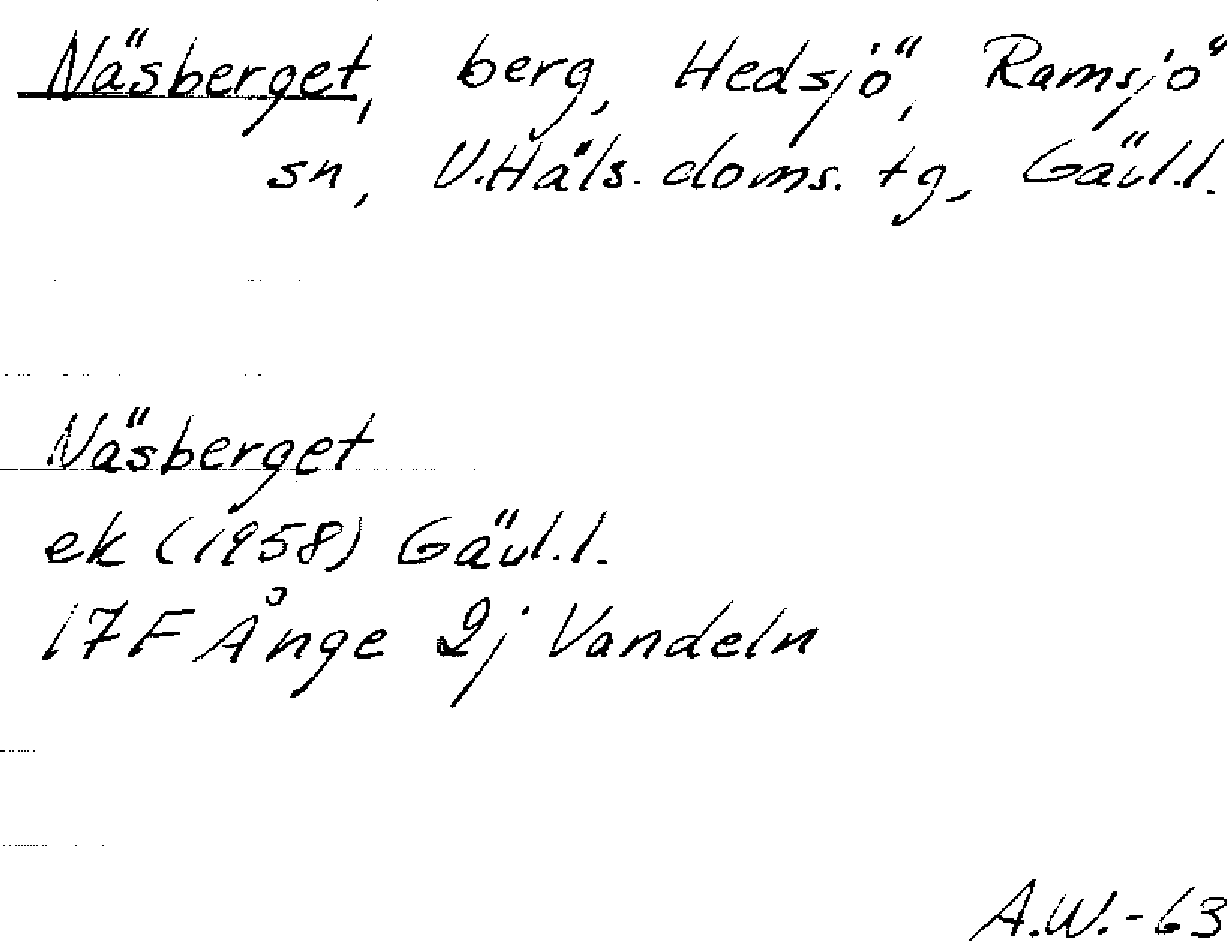 Näsberget, berg, Hedsjö, Ramsjö
sn, V.Häls. doms. tg, Gävl.l.
Näsberget
ek (1958) Gävl.l.
17F Ånge 2j Vandeln
A.W.-63